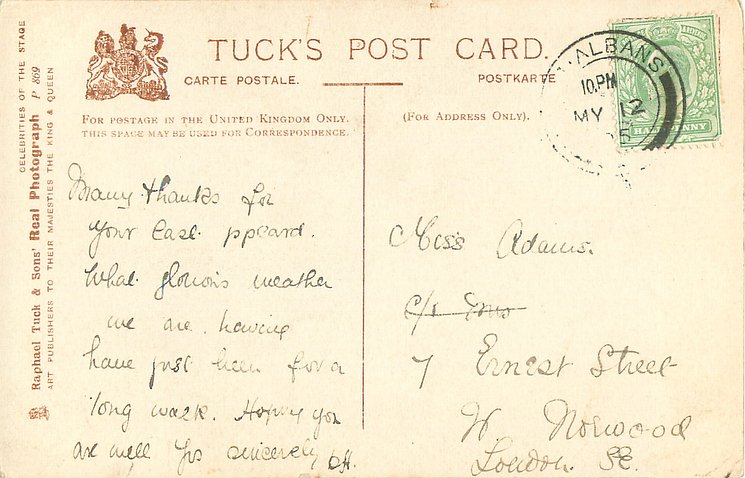 TUCK'S POST CARD.
CARTE POSTALE.
POSTKARTE
FOR POSTAGE IN THE UNITED KINGDOM ONLY.
THIS SPACE MAY BE USED FOR CORRESPONDENCE.
(FOR ADDRESS ONLY).
CELEBRITIES OF THE STAGE
Raphael Tuck & Sons' Real Photograph P 869
ART PUBLISHERS TO THEIR MAJESTIES THE KING & QUEEN
ALBANS
10.PM
MY 12
Many thanks for
your last ppcard.
What glorious weather
we are having
have just been for a
long walk. Hoping you
are well Yrs sincerely
Miss Adams.
c/o
7 Ernest Street
W Norwood
London. SE.